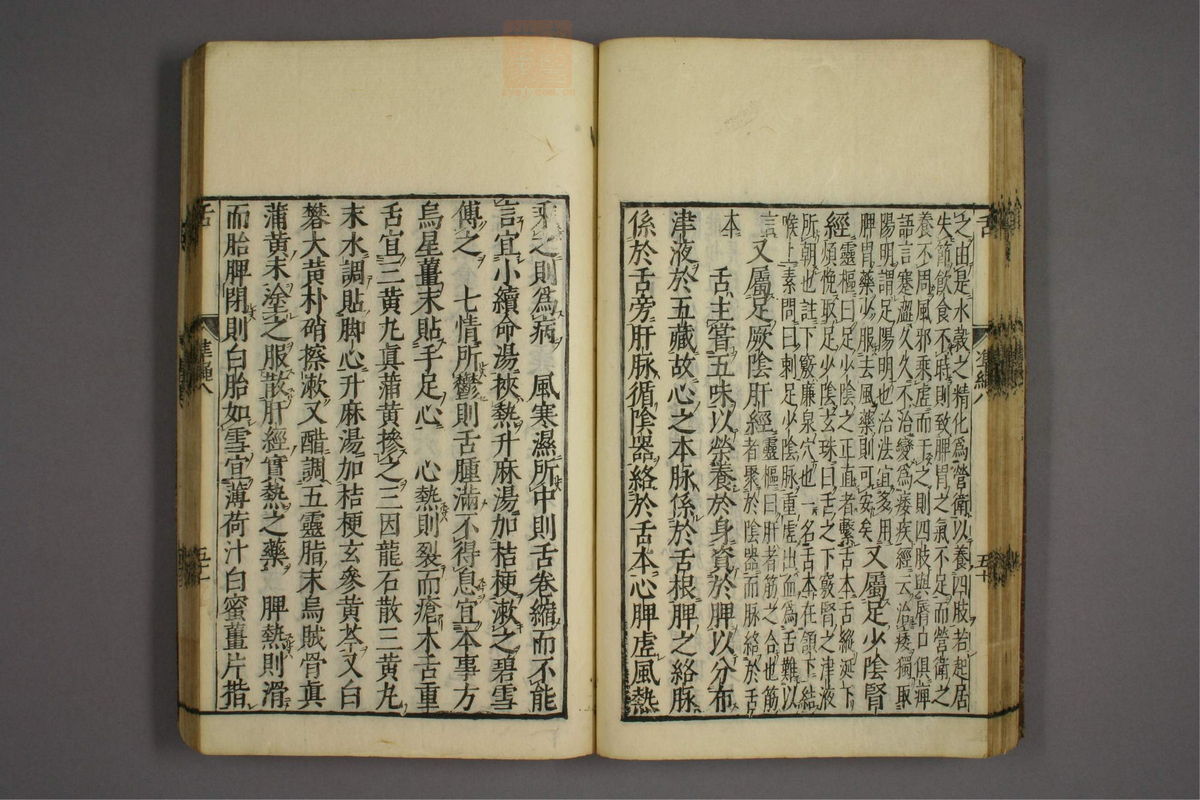 之由是水穀之精化爲營衛以養四肢若起居
失節飮食不時則致脾胃之氣不足而營衛之
養不周風邪乘虛而干之則四肢與唇口俱痺
語言蹇澀久久不治變爲痿疾經云治痿獨取
陽明謂足陽明也治法宜多用
脾胃藥少服去風藥則可安矣 又屬足少陰腎
經靈樞曰足少陰之正直者繫舌本舌縱涎下
煩悗取足少陰玄珠曰舌之下竅腎之津液
所朝也註下竅廉泉穴也一名舌本在頷下結
喉上素問曰刺足少陰脉重虛出血爲舌難以
言 又屬足厥陰肝經靈樞曰肝者筋之合也筋
者聚於陰器而脉絡於舌
本
舌主嘗五味以榮養於身資於脾以分布
津液於五藏故心之本脉係於舌根脾之絡脉
係於舌旁肝脉循陰器絡於舌本心脾虛風熱
乘之則爲病 風寒濕所中則舌卷縮而不能
言宜小續命湯挾熱升麻湯加桔梗漱之碧雪
傅之 七情所鬱則舌腫滿不得息宜本事方
烏星薑末貼手足心 心熱則裂而瘡木舌重
舌宜三黄丸真蒲黄摻之三因龍石散三黄丸
末水調貼脚心升麻湯加桔梗玄參黄芩又白
礬大黄朴硝擦漱又醋調五靈脂末烏賊骨真
蒲黄末塗之服散肝經實熱之藥 脾熱則滑
而胎脾閉則白胎如雪宜薄荷汁白蜜薑片揩
舌
準繩八
五十
舌
準繩八